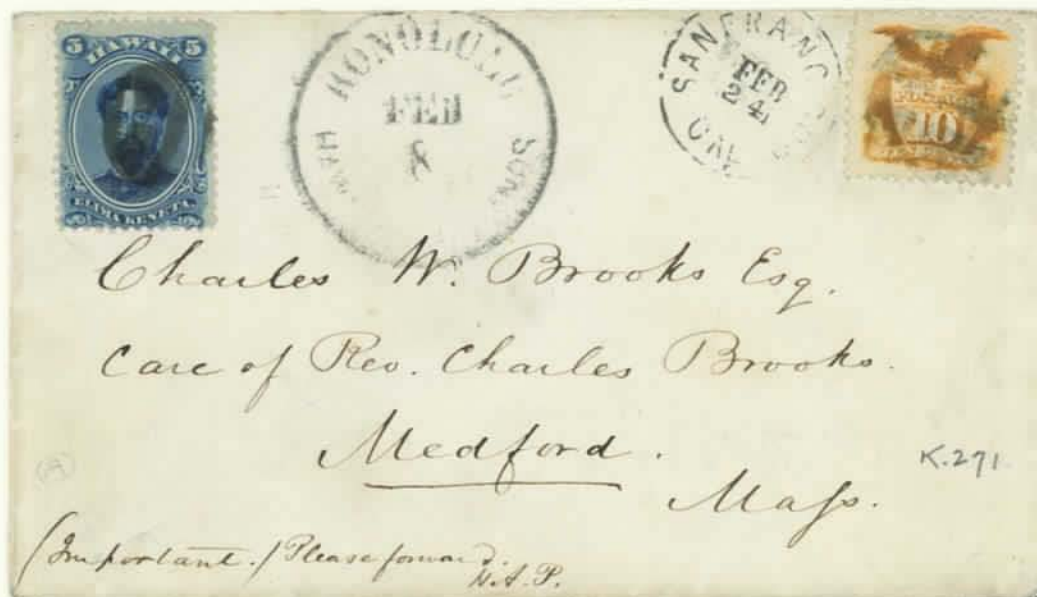 5 HAWAII 5
ELIMA KENETA
HONOLULU
FEB
8
SAN FRANC
FEB
24
CAL
10
Charles W. Brooks Esq.
Care of Rev. Charles Brooks.
Medford.
Mass.
K.291
(Important.) Please forward.